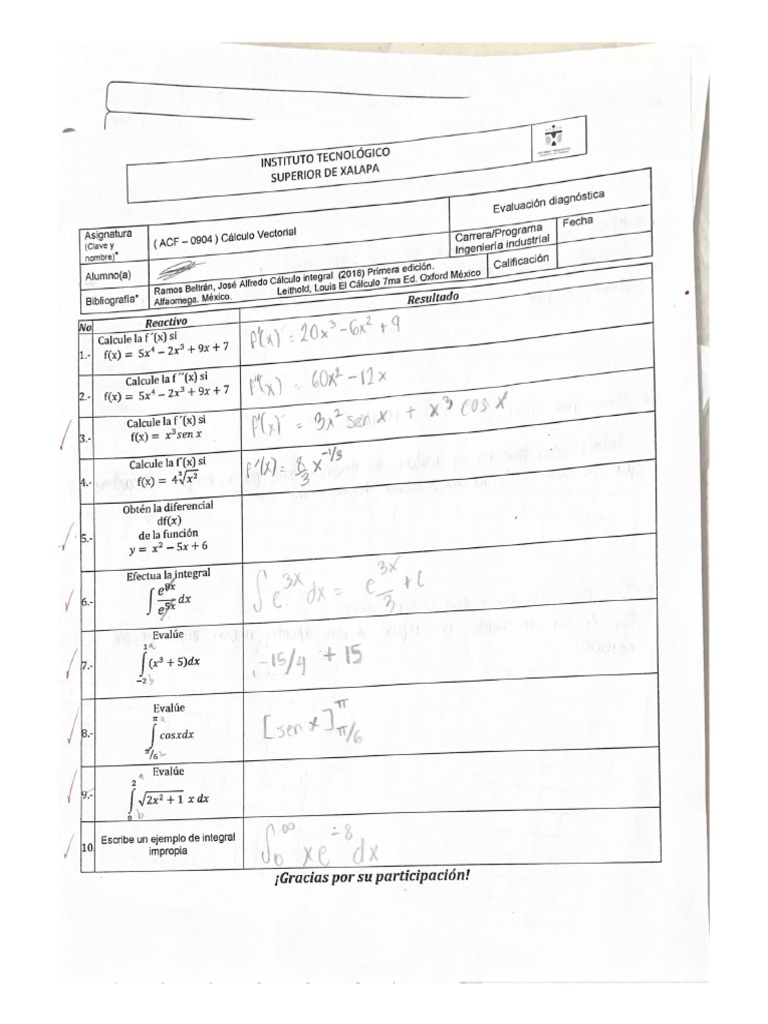 INSTITUTO TECNOLÓGICO
SUPERIOR DE XALAPA
Asignatura
(Clave y
nombre)*
( ACF – 0904 ) Cálculo Vectorial
Evaluación diagnóstica
Carrera/Programa
Ingeniería industrial
Fecha
Alumno(a)
Calificación
Bibliografía*
Ramos Beltrán, José Alfredo Cálculo integral (2018) Primera edición.
Alfaomega. México. Leithold, Louis El Cálculo 7ma Ed. Oxford México
No Reactivo Resultado
1.- Calcule la f´(x) si
f(x) = 5x⁴ − 2x³ + 9x + 7
f'(x) = 20x³ − 6x² + 9
2.- Calcule la f´´(x) si
f(x) = 5x⁴ − 2x³ + 9x + 7
f''(x) = 60x² − 12x
3.- Calcule la f´(x) si
f(x) = x³sen x
f'(x) = 3x² sen x + x³ cos x
4.- Calcule la f´(x) si
f(x) = 4∛x²
f'(x) = 8/3 x^-1/3
5.- Obtén la diferencial
df(x)
de la función
y = x² − 5x + 6
6.- Efectua la integral
∫ e^8x/e^5x dx
∫ e^3x dx = e^3x/3 + C
7.- Evalúe
∫ (x³ + 5)dx
1 a
−2 b
−15/4 + 15
8.- Evalúe
∫ cosxdx
π a
π/6
[sen x] π π/6
9.- Evalúe
∫ √2x² + 1 x dx
2 a
0 b
10. Escribe un ejemplo de integral
impropia
∫₀^∞ xe^-8 dx
¡Gracias por su participación!